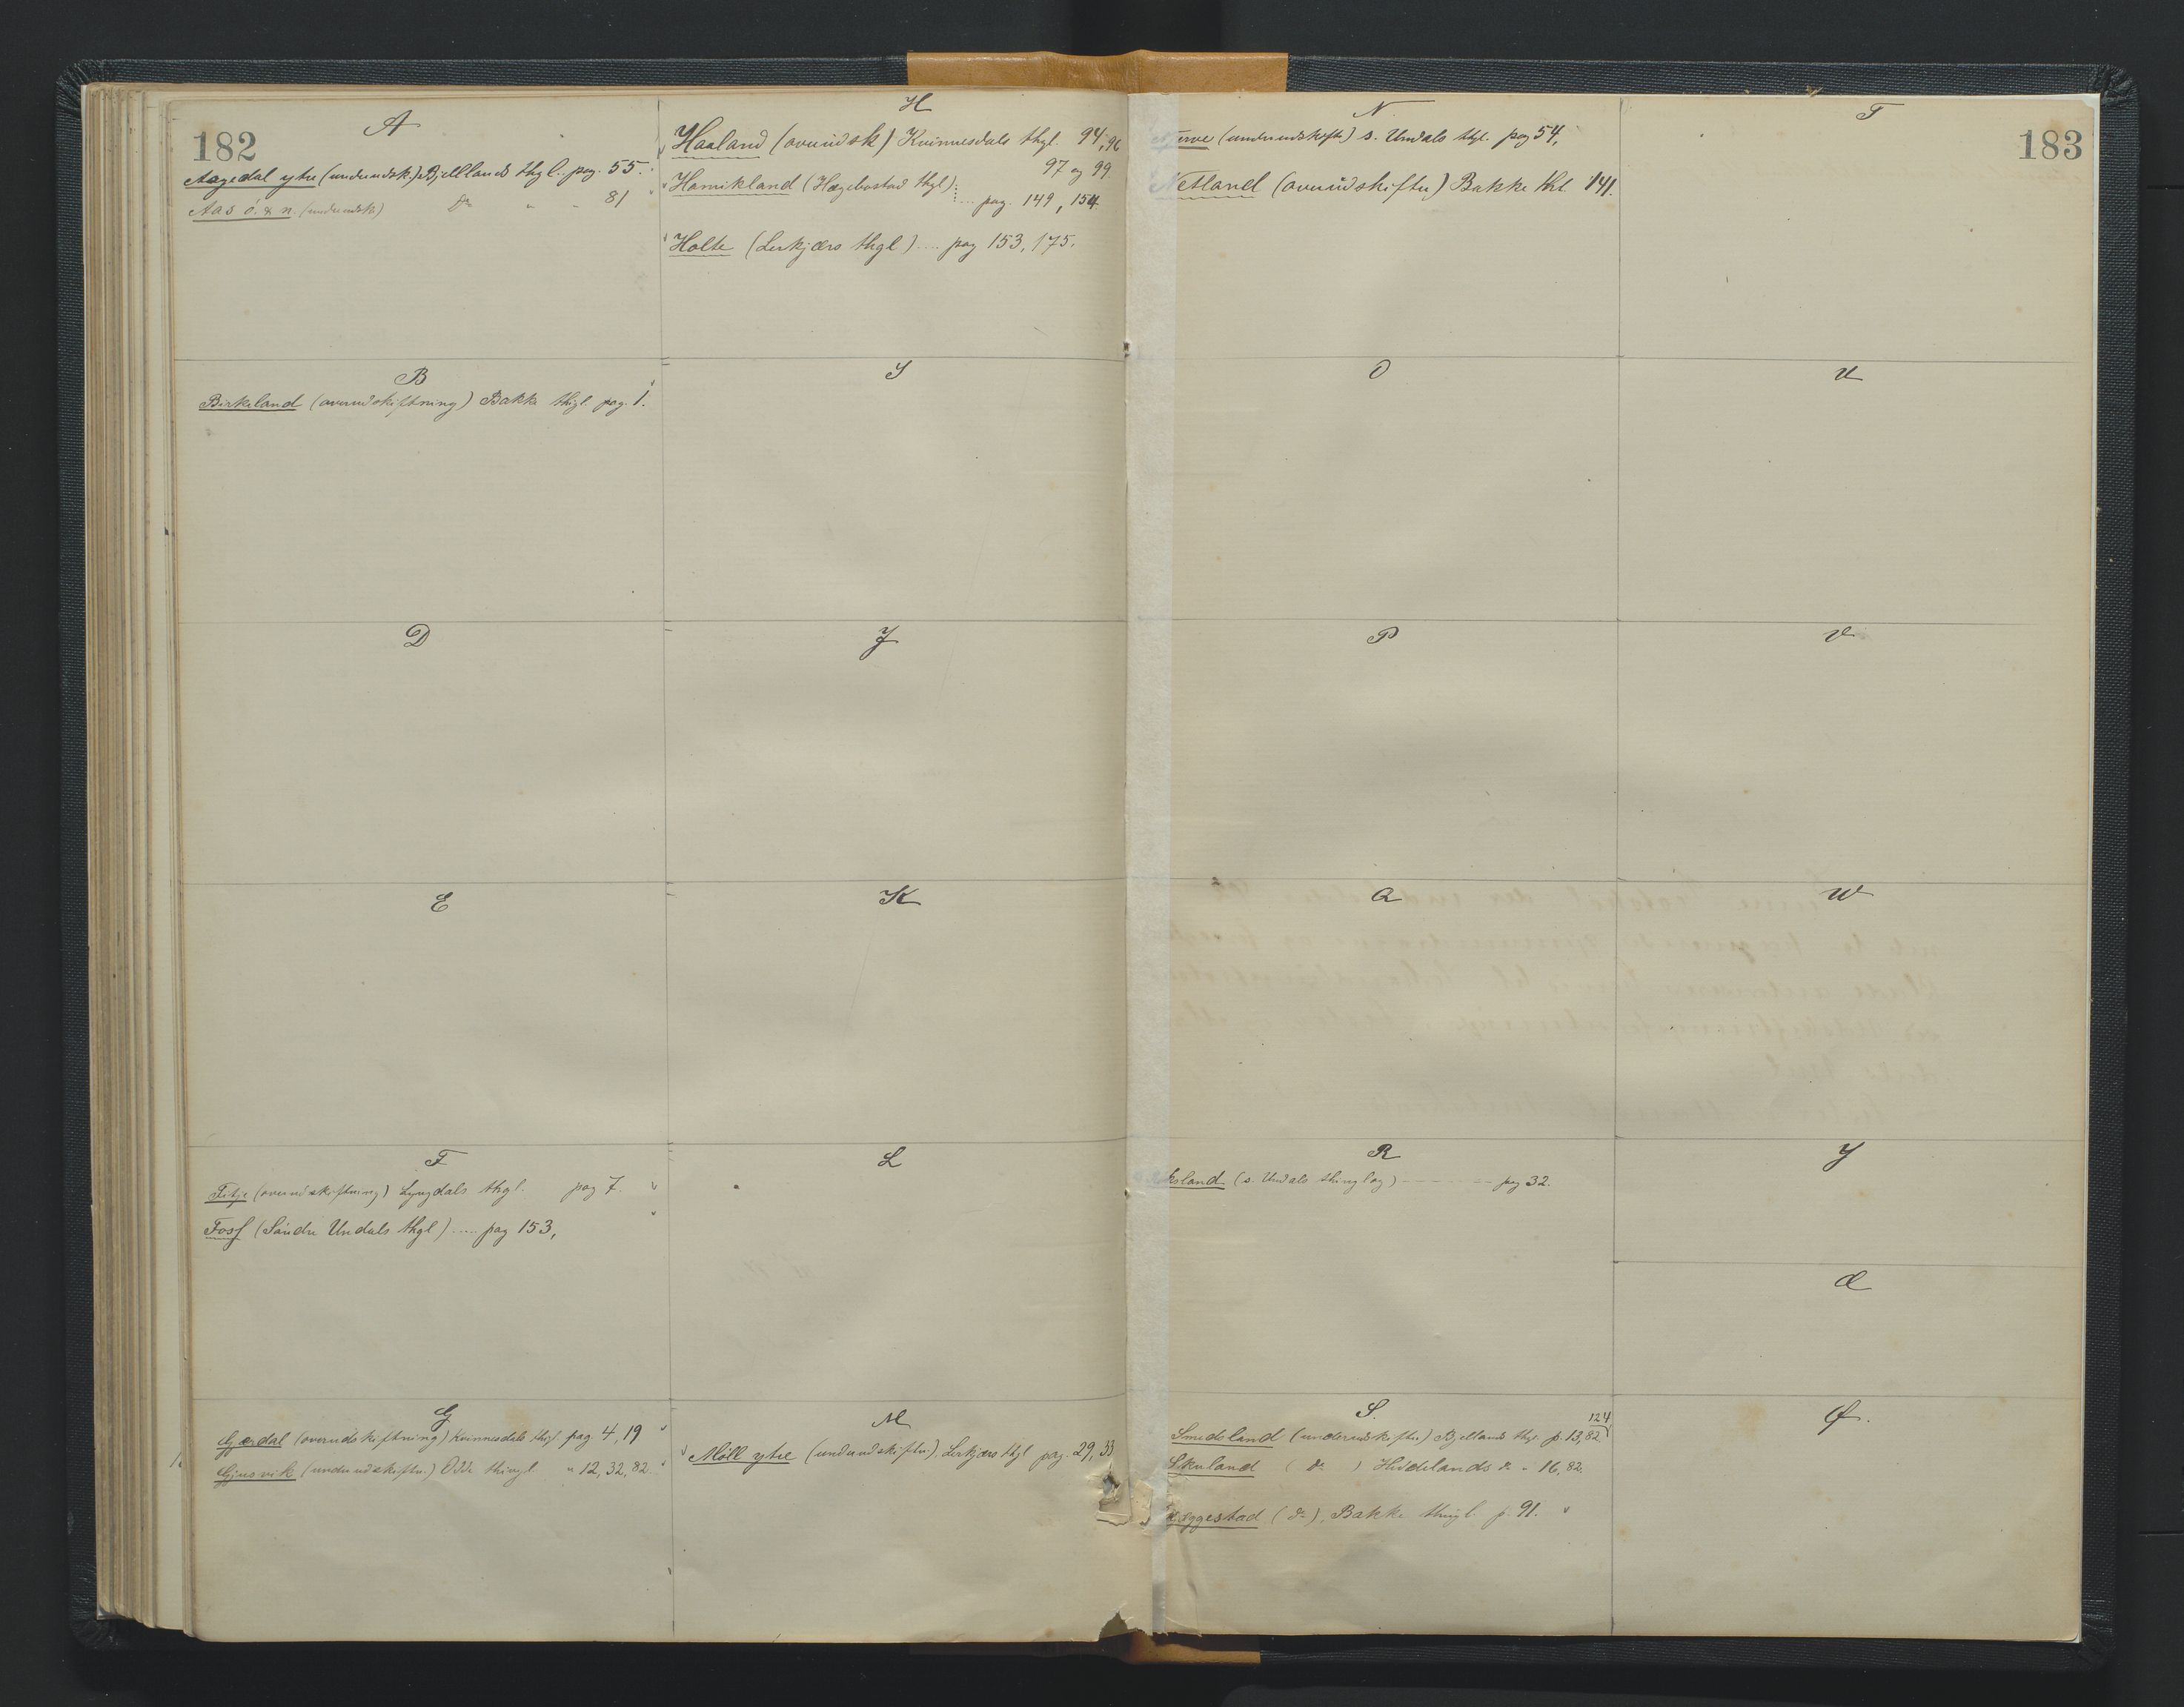 182
A
Aagedal ytre (underudsk.) Bjellands thgl. pag. 55.
Aas ö. & n. (underudsk.) do " " 81
B
Birkeland (overudskiftning) Bakke thgl. pag. 1.
D
E
F
Fitje (overudskiftning) Lyngdals thgl. pag 7.
Foss (Söndre Undals thgl) .... pag 153,
G
Gjærdal (overudskiftning) Kvinnesdals thgl. pag 4, 19
Gjeusvik (underudskiftn.) Odde thingl. " 12, 32, 82.
H
Haaland (overudsk) Kvinnesdals thgl. 94, 96
97 og 99
Hamikland (Hægebostad thgl)
.... pag. 149, 154.
Holte (Leikjærs thgl) .... pag 153, 175.
I
J
K
L
M
Möll ytre (underudskiftn.), Leikjærs thgl pag. 29, 33
183
N
(underudskiftn) s. Undals thgl. pag 54,
Netland (overudskiftn) Bakke thl 141.
O
P
Q
R
ksland (s. Undals thinglag) - - - - - pag 32.
S.
124
Smedsland (underudskiftn.) Bjellands thgl. p. 13, 82
Skuland ( do ) Hidelands do " 16, 82.
æggestad (do), Bakke thingl. p. 91.
T
U
V
W
Y
Æ
Ø.